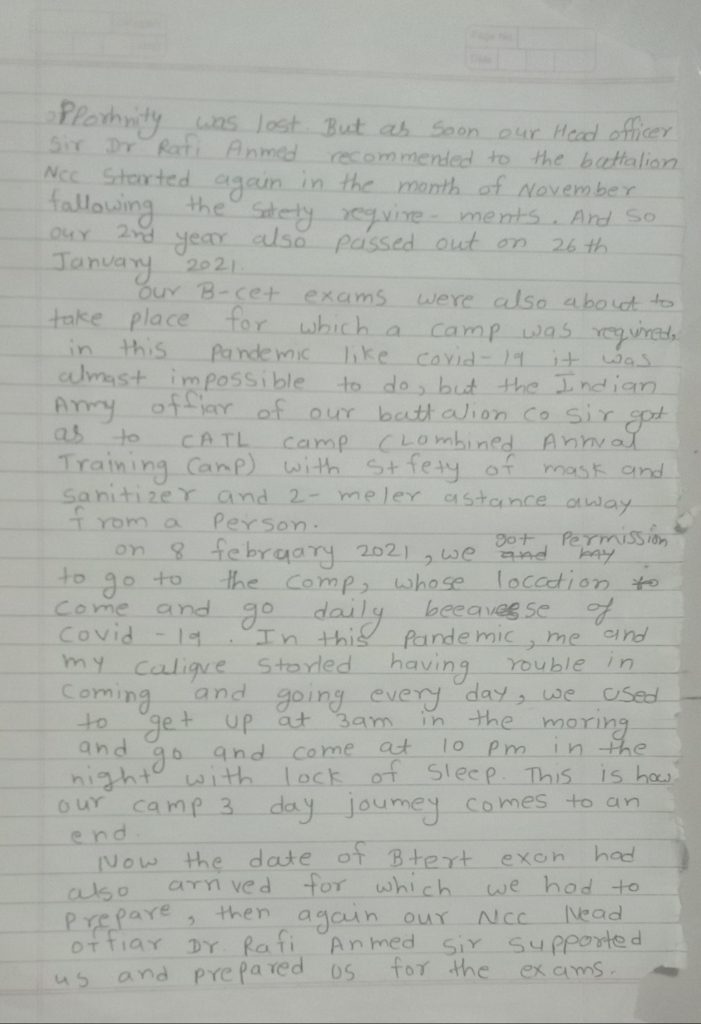 Page No.
Date
opportunity was lost. But as soon our Head officer
Sir Dr Rafi Anmed recommended to the battalion
NCC Started again in the month of November
fallowing the Sotety requvire- ments. And so
our 2nd year also passed out on 26 th
January 2021.
Our B-cet exams were also about to
take place for which a camp was required,
in this Pandemic like covid-19 it was
almast impossible to do, but the Indian
Army offiar of our battalion Co Sir got
as to CATL camp (Lombined Annval
Training Camp) with Stfety of mask and
Sanitizer and 2- meler astance away
from a Person.
on 8 febraary 2021, we got Permission
to go to the comp, whose location to
come and go daily beeavesse of
Covid -19. In this Pandemic, me and
my caliqve Storled having rouble in
Coming and going every day, we used
to get up at 3am in the moring
and go and come at 10 pm in the
night with lack of Sleep. This is how
our camp 3 day joumey comes to an
end.
Now the date of Btert exon had
also arnved for which we had to
Prepare, then again our NCC Nead
offiar Dr. Rafi Anmed Sir Supported
us and prepared os for the exams.